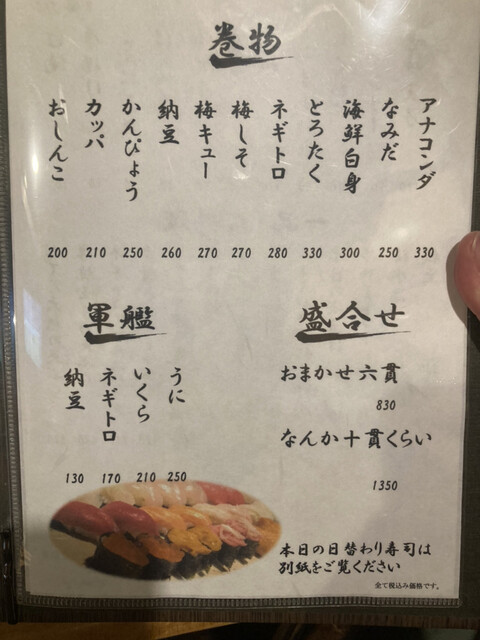 巻物
アナコンダ
330
なみだ
250
海鮮白身
300
とろたく
330
ネギトロ
280
梅しそ
270
梅キュー
270
納豆
260
かんぴょう
250
カッパ
210
おしんこ
200
軍艦
うに
250
いくら
210
ネギトロ
170
納豆
130
盛合せ
おまかせ六貫
830
なんか十貫くらい
1350
本日の日替わり寿司は
別紙をご覧ください
全て税込み価格です。